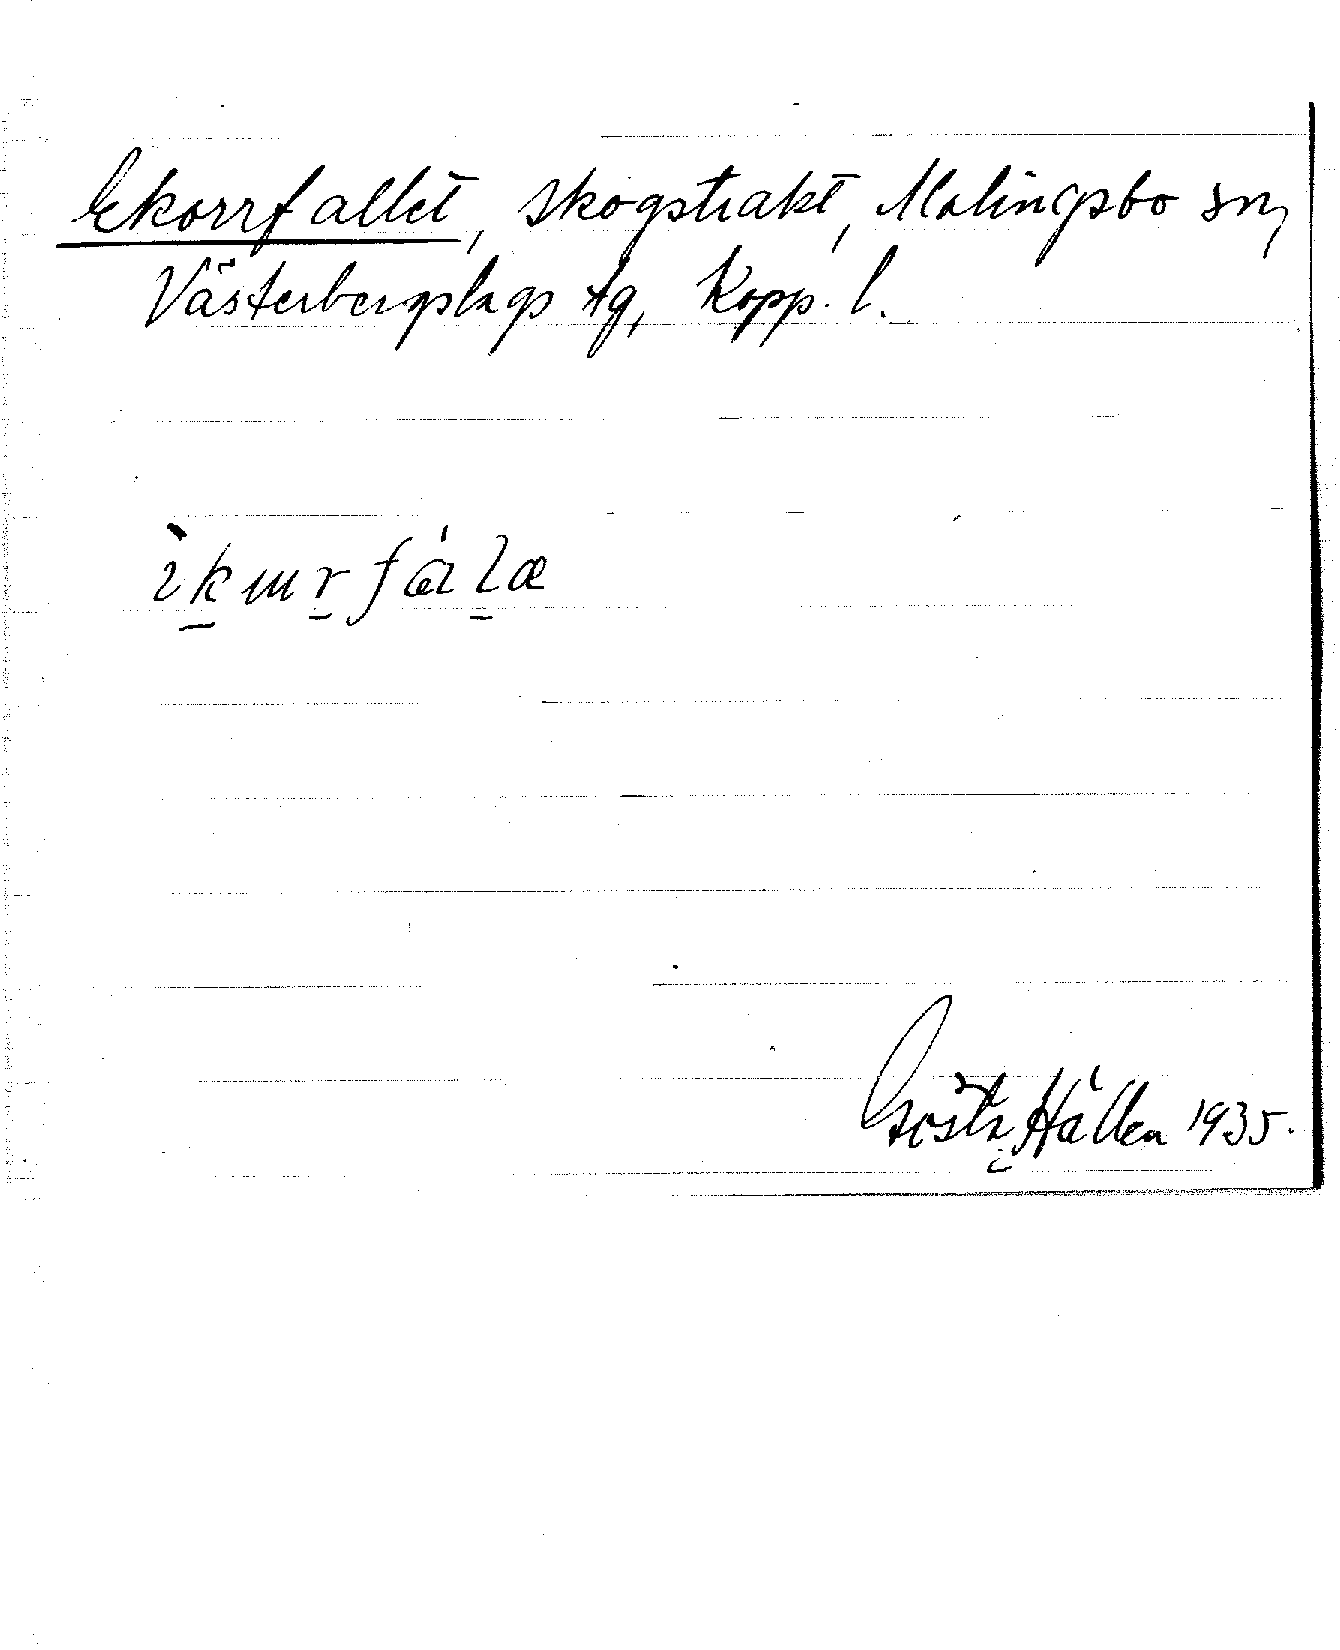 Ekorrfallet, skogstrakt, Malingsbo sn,
Västerbergslags tg, Kopp. l.
ìkɯrfálæ
Gösta Hällen 1935.